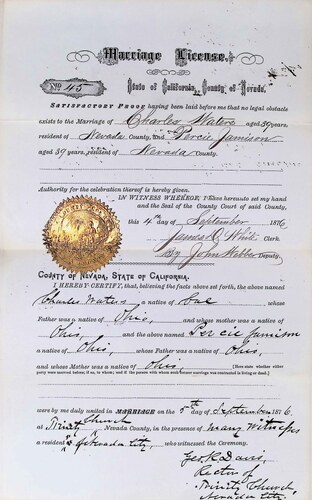 Marriage License.
No. 45
State of California, County of Nevada.
SATISFACTORY PROOF having been laid before me that no legal obstacle
exists to the Marriage of Charles Waters aged 39 years
resident of Nevada County, and Percie Jamison
aged 39 years, resident of Nevada County.
Authority for the celebration thereof is hereby given.
IN WITNESS WHEREOF, I have hereunto set my hand
and the Seal of the County Court of said County,
this 4th day of September 1876
James D. White Clerk.
By John Webber Deputy.
COUNTY OF NEVADA, STATE OF CALIFORNIA.
I HEREBY CERTIFY, that, believing the facts above set forth, the above named
Charles Waters a native of whose
Father was a native of Ohio, and whose mother was a native of
Ohio, and the above named Percie Jamison
a native of Ohio, whose Father was a native of Ohio.
and whose Mother was a native of Ohio. [Here state whether either
party were married before; if so, to whom; and if the person with whom former marriage was contracted is living or dead.]
were by me duly united in MARRIAGE on the 5th day of September 1876.
at Trinity Church Nevada County, in the presence of many Witnesses
a resident of Nevada City, who witnessed the Ceremony.
Geo. R. Davis,
Rector of
Trinity Church,
Nevada City